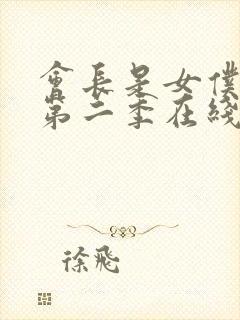 會長是女僕
第二季在綫
徐飛